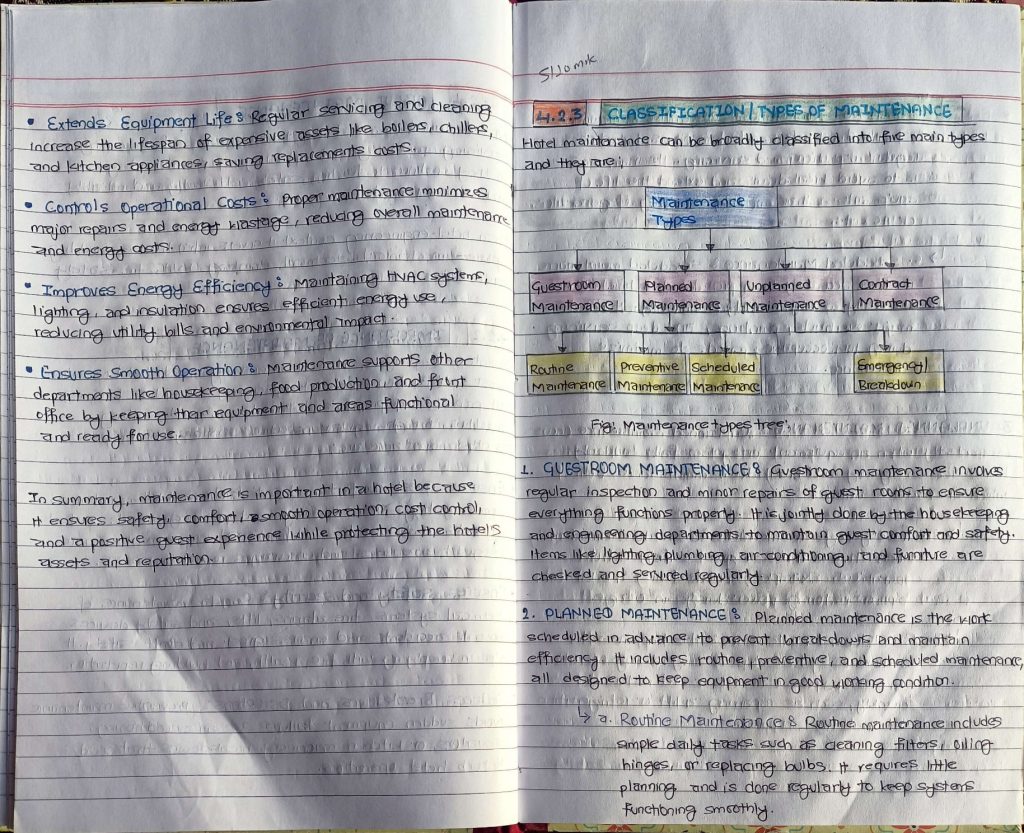 • Extends Equipment Life: Regular servicing and cleaning
increase the lifespan of expensive assets like boilers, chillers,
and kitchen appliances, saving replacements costs.
• Controls Operational Costs: Proper maintenance minimizes
major repairs and energy wastage, reducing overall maintenance
and energy costs.
• Improves Energy Efficiency: Maintaining HVAC systems,
lighting, and insulation ensures efficient energy use,
reducing utility bills and environmental impact.
• Ensures Smooth Operation: Maintenance supports other
departments like housekeeping, food production, and front
office by keeping their equipment and areas functional
and ready for use.
In summary, maintenance is important in a hotel because
it ensures safety, comfort, smooth operation, cost control,
and a positive guest experience while protecting the hotel's
assets and reputation.
4.2.3 CLASSIFICATION/TYPES OF MAINTENANCE
Hotel maintenance can be broadly classified into five main types
and they are:
Maintenance
Types
Guestroom Maintenance
Planned Maintenance
Unplanned Maintenance
Contract Maintenance
Routine Maintenance
Preventive Maintenance
Scheduled Maintenance
Emergency/ Breakdown
Fig: Maintenance types tree.
1. GUESTROOM MAINTENANCE: Guestroom maintenance involves
regular inspection and minor repairs of guest rooms to ensure
everything functions properly. It is jointly done by the housekeeping
and engineering departments to maintain guest comfort and safety.
Items like lighting, plumbing, air-conditioning, and furniture are
checked and serviced regularly.
2. PLANNED MAINTENANCE: Planned maintenance is the work
scheduled in advance to prevent breakdowns and maintain
efficiency. It includes routine, preventive, and scheduled maintenance,
all designed to keep equipment in good working condition.
↳ a. Routine Maintenance: Routine maintenance includes
simple daily tasks such as cleaning filters, oiling
hinges, or replacing bulbs. It requires little
planning and is done regularly to keep systems
functioning smoothly.